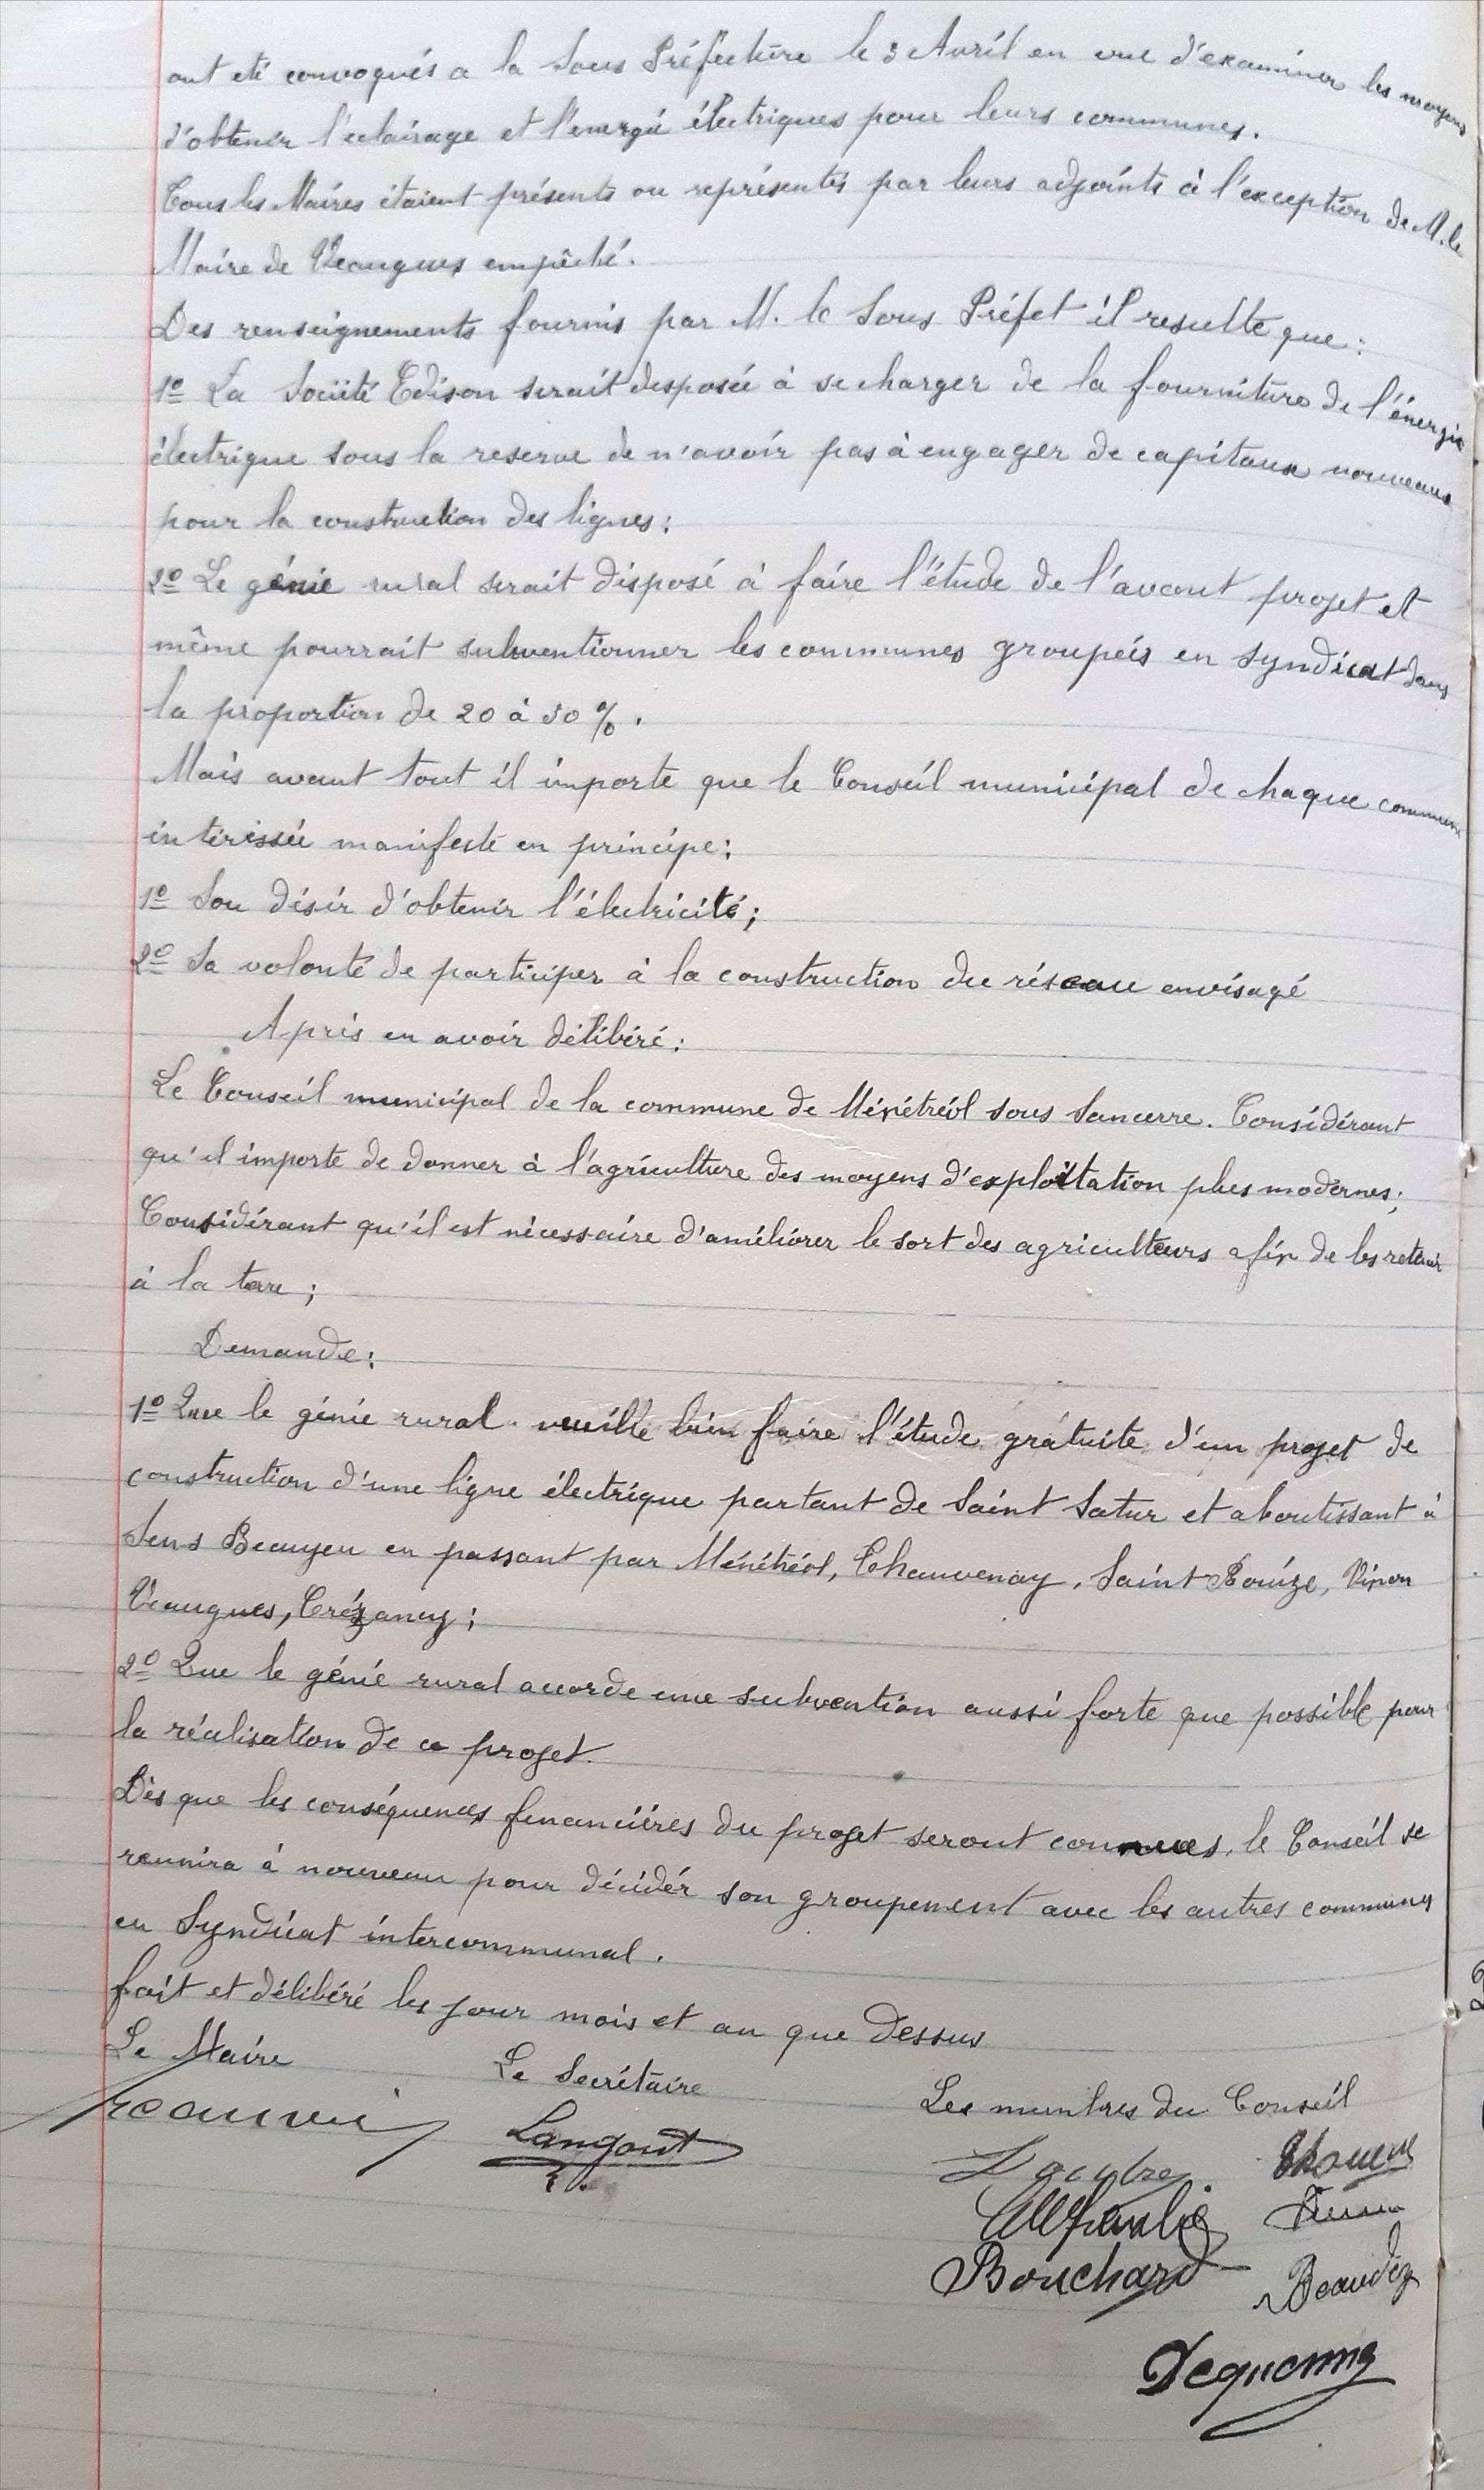 ont eté convoqués a la Sous Préfecture le 3 Avril en vue d'examiner les moyens
d'obtenir l'eclairage et l'energie électriques pour leurs communes.
Tous les Maires étaient présents ou représentés par leurs adjoints à l'exception de M. le
Maire de Veaugues empêché.
Des renseignements fournis par M. le Sous Préfet il resulte que :
1º La Société Edison serait desposée à se charger de la fourniture de l'énergie
électrique sous la reserve de n'avoir pas à engager de capitaux nouveaux
pour la construction des lignes :
2º Le génie rural serait disposé à faire l'étude de l'avant projet et
même pourrait subventionner les communes groupées en syndicat dans
la proportion de 20 à 30 %.
Mais avant tout il importe que le Conseil municipal de chaque commune
intéressée manifeste en principe :
1º Son désir d'obtenir l'électricité ;
2º Sa volonté de participer à la construction du réseau envisagé
Après en avoir délibéré :
Le Conseil municipal de la commune de Ménétréol sous Sancerre. Considérant
qu'il importe de donner à l'agriculture des moyens d'exploitation plus modernes ;
Considérant qu'il est nécessaire d'améliorer le sort des agriculteurs afin de les retenir
à la terre ;
Demande :
1º Que le génie rural veuille bien faire l'étude gratuite d'un projet de
construction d'une ligne électrique partant de Saint Satur et aboutissant à
Sens Beaujeu en passant par Ménétréol, Chauvenay, Saint Bouize, Vinon
Veaugues, Crézancy ;
2º Que le génie rural accorde une subvention aussi forte que possible pour
la réalisation de ce projet.
Dès que les conséquences financières du projet seront connues, le Conseil se
reunira à nouveau pour décider son groupement avec les autres communes
en Syndicat intercommunal.
fait et délibéré les jour mois et an que dessus
Le Maire
Le Secrétaire
Les membres du Conseil
Langout
Bouchard
Beaudez
Dequenne